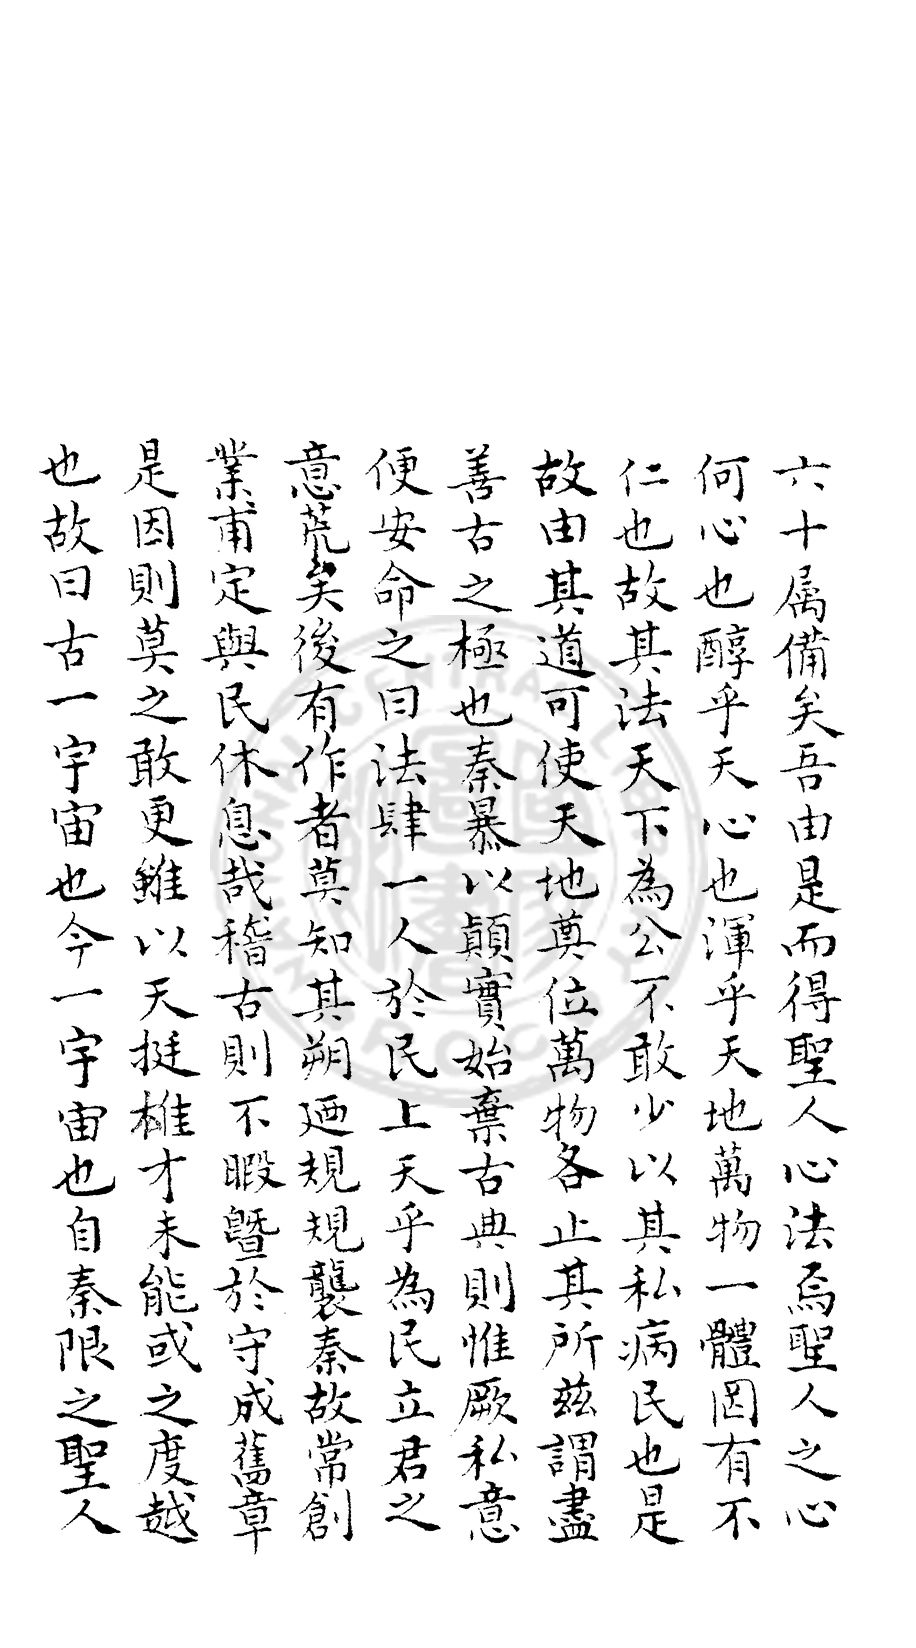 六十属備矣吾由是而得聖人心法焉聖人之心
何心也醇乎天心也渾乎天地萬物一體罔有不
仁也故其法天下為公不敢少以其私病民也是
故由其道可使天地奠位萬物各止其所茲謂盡
善古之極也秦暴以顛實始棄古典則惟厥私意
便安命之曰法肆一人於民上天乎為民立君之
意荒矣後有作者莫知其朔廼規規襲秦故常創
業甫定與民休息哉稽古則不暇暨於守成舊章
是因則莫之敢更雖以天挺雄才未能或之度越
也故曰古一宇宙也今一宇宙也自秦限之聖人
NATIONAL CENTRAL LIBRARY